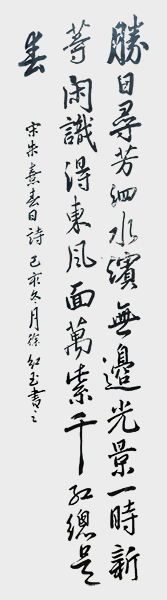 勝日尋芳泗水濱無邊光景一時新
等閑識得東風面萬紫千紅總是
春
宋朱熹春日詩己亥冬月徐紅玉書之